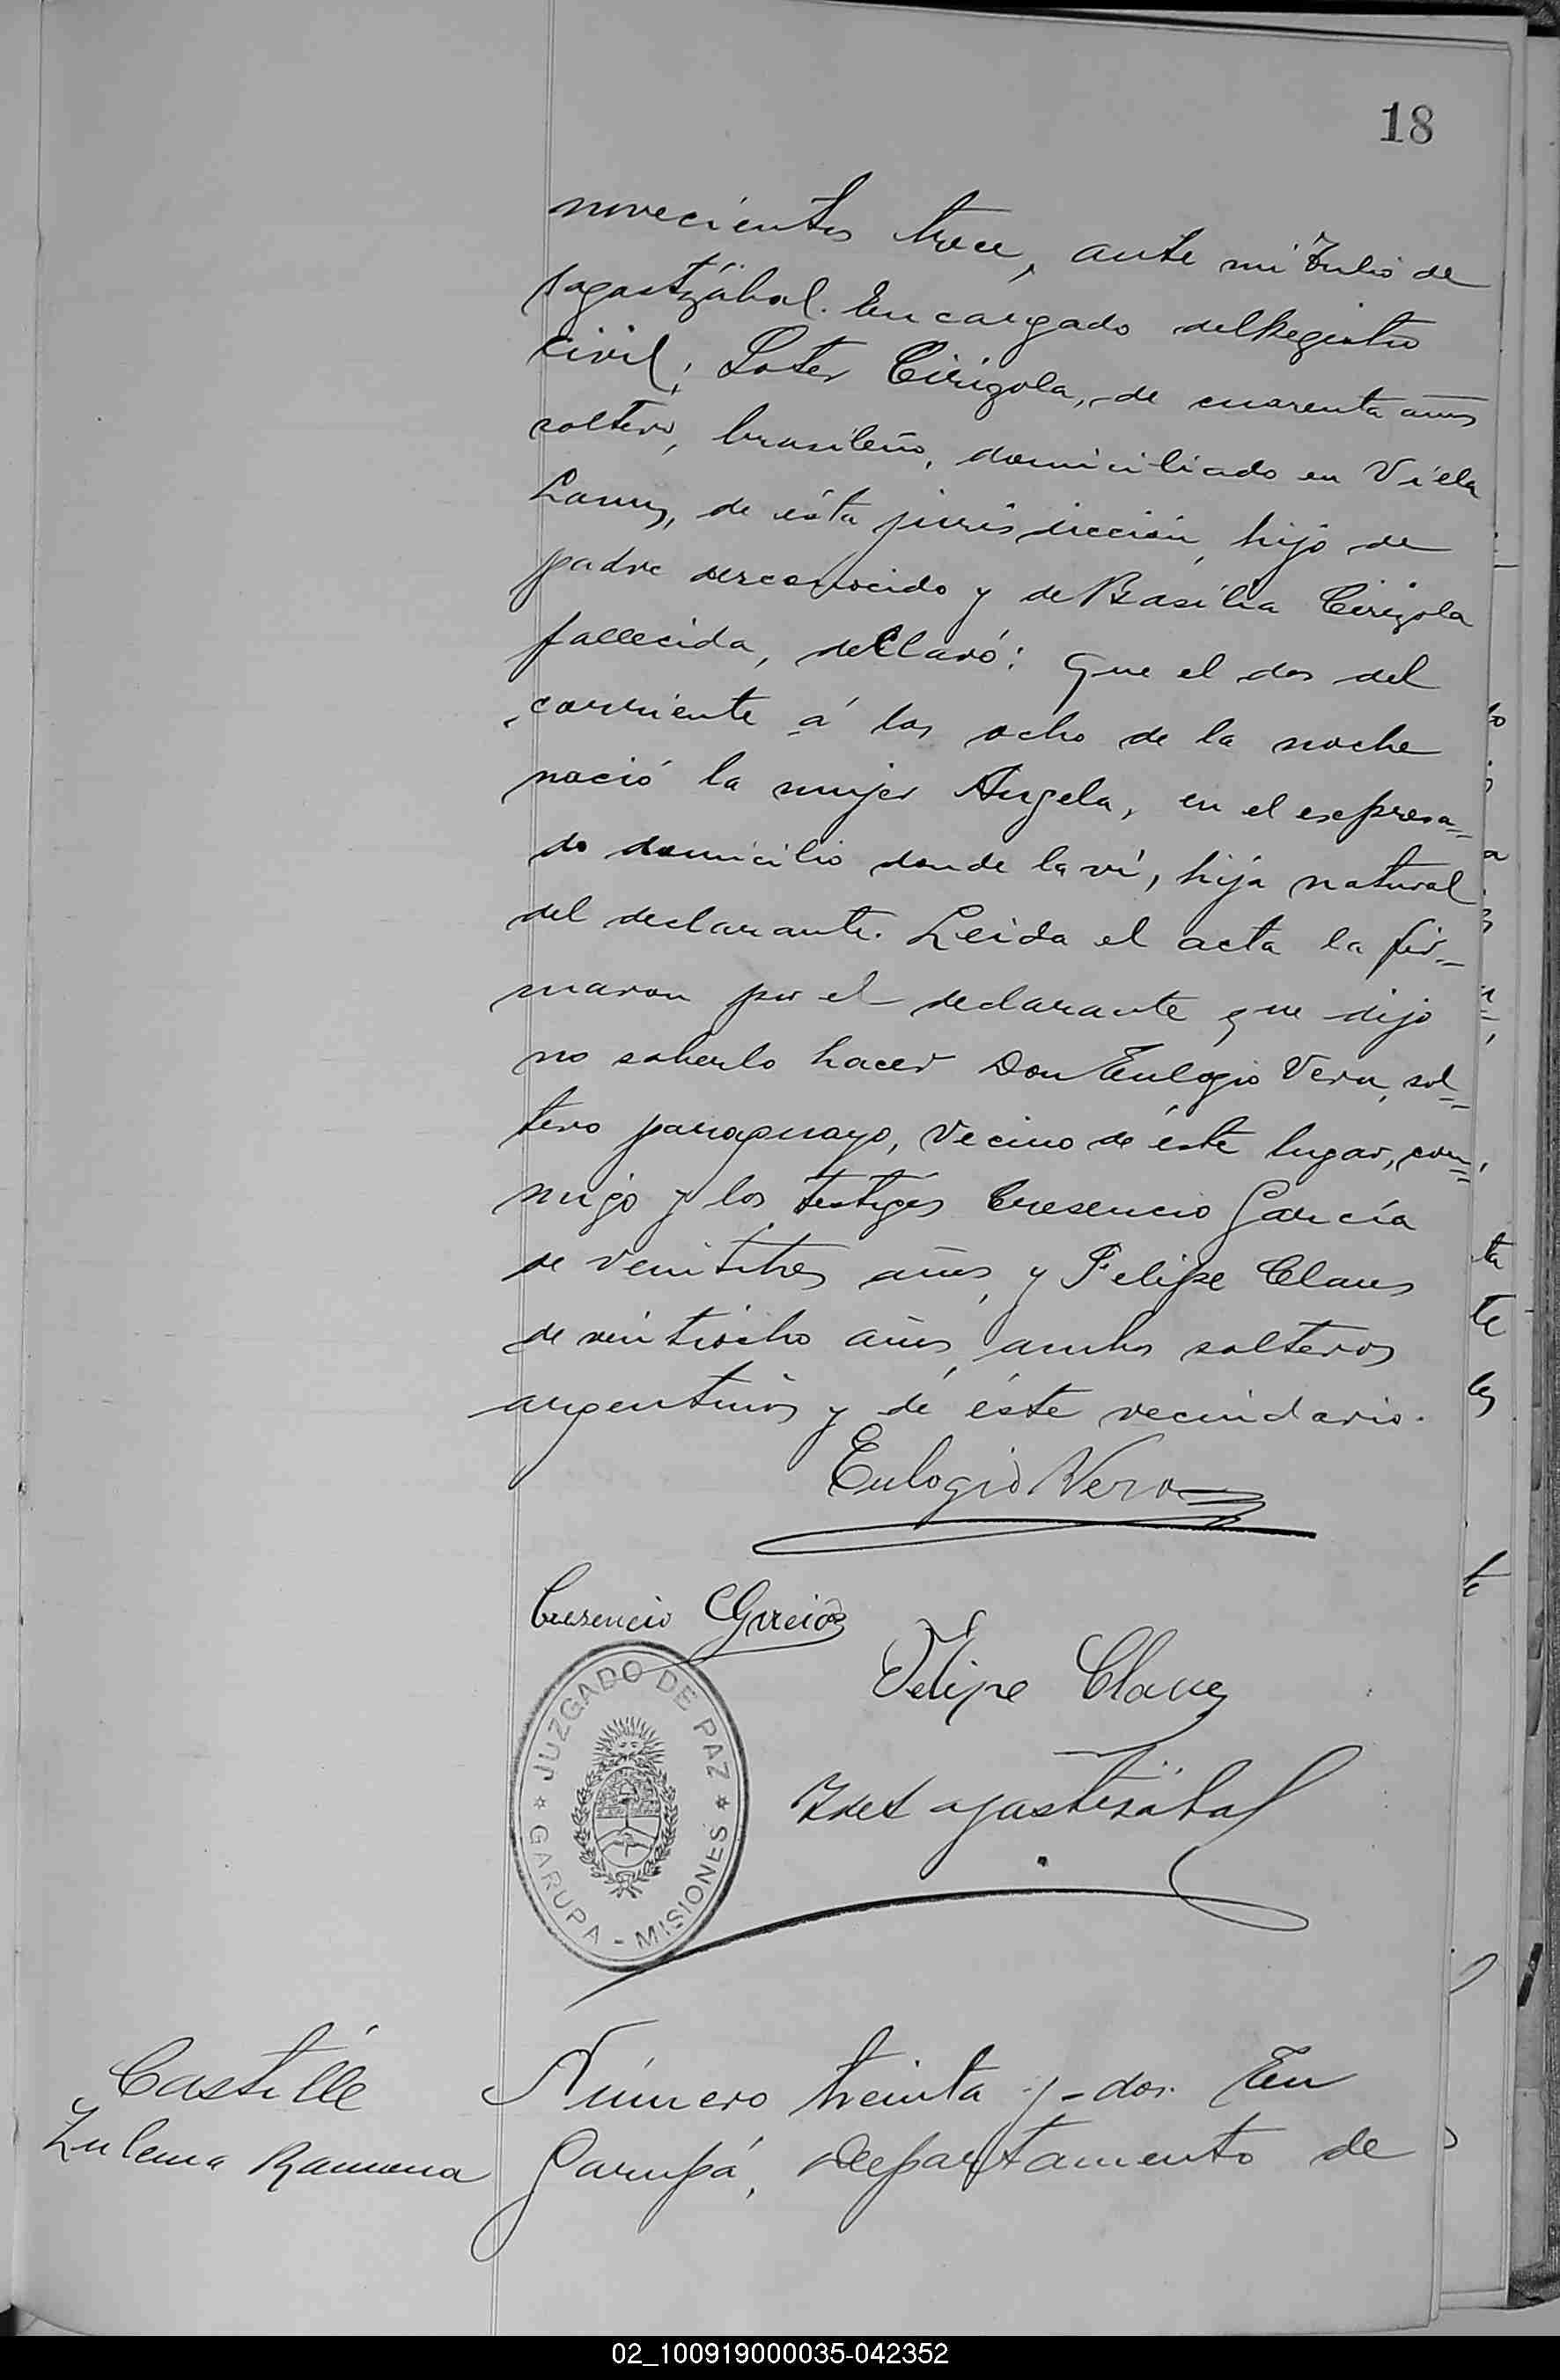 18
novecientos trece, ante mi Julio de
Sagastizábal. Encargado del Registro
Civil; Soter Cirizola, de cuarenta años
soltero, brasileño, domiciliado en Villa
Lanus, de ésta jurisdicción, hijo de
padre desconocido y de Basilia Cirizola
fallecida, declaró: Que el dos del
corriente á las ocho de la noche
nació la mujer Angela, en el espresa=
do domicilio donde la ví, hija natural
del declarante. Leida el acta la fir=
maron por el declarante que dijo
no saberlo hacer Don Eulogio Vera, sol=
tero paraguayo, vecino de éste lugar, con=
migo y los testigos Cresencio García
de veintitres años, y Felipe Claus
de veintiocho años, ambos solteros
argentinos y de éste vecindario.
Eulogio Vera
Cresencio Garcia
Felipe
JUZGADO DE PAZ
GARUPA - MISIONES
agastizábal
Castillé
Zulema Ramona
Número treinta y dos. En
Garupá, departamento de
02_100919000035-042352